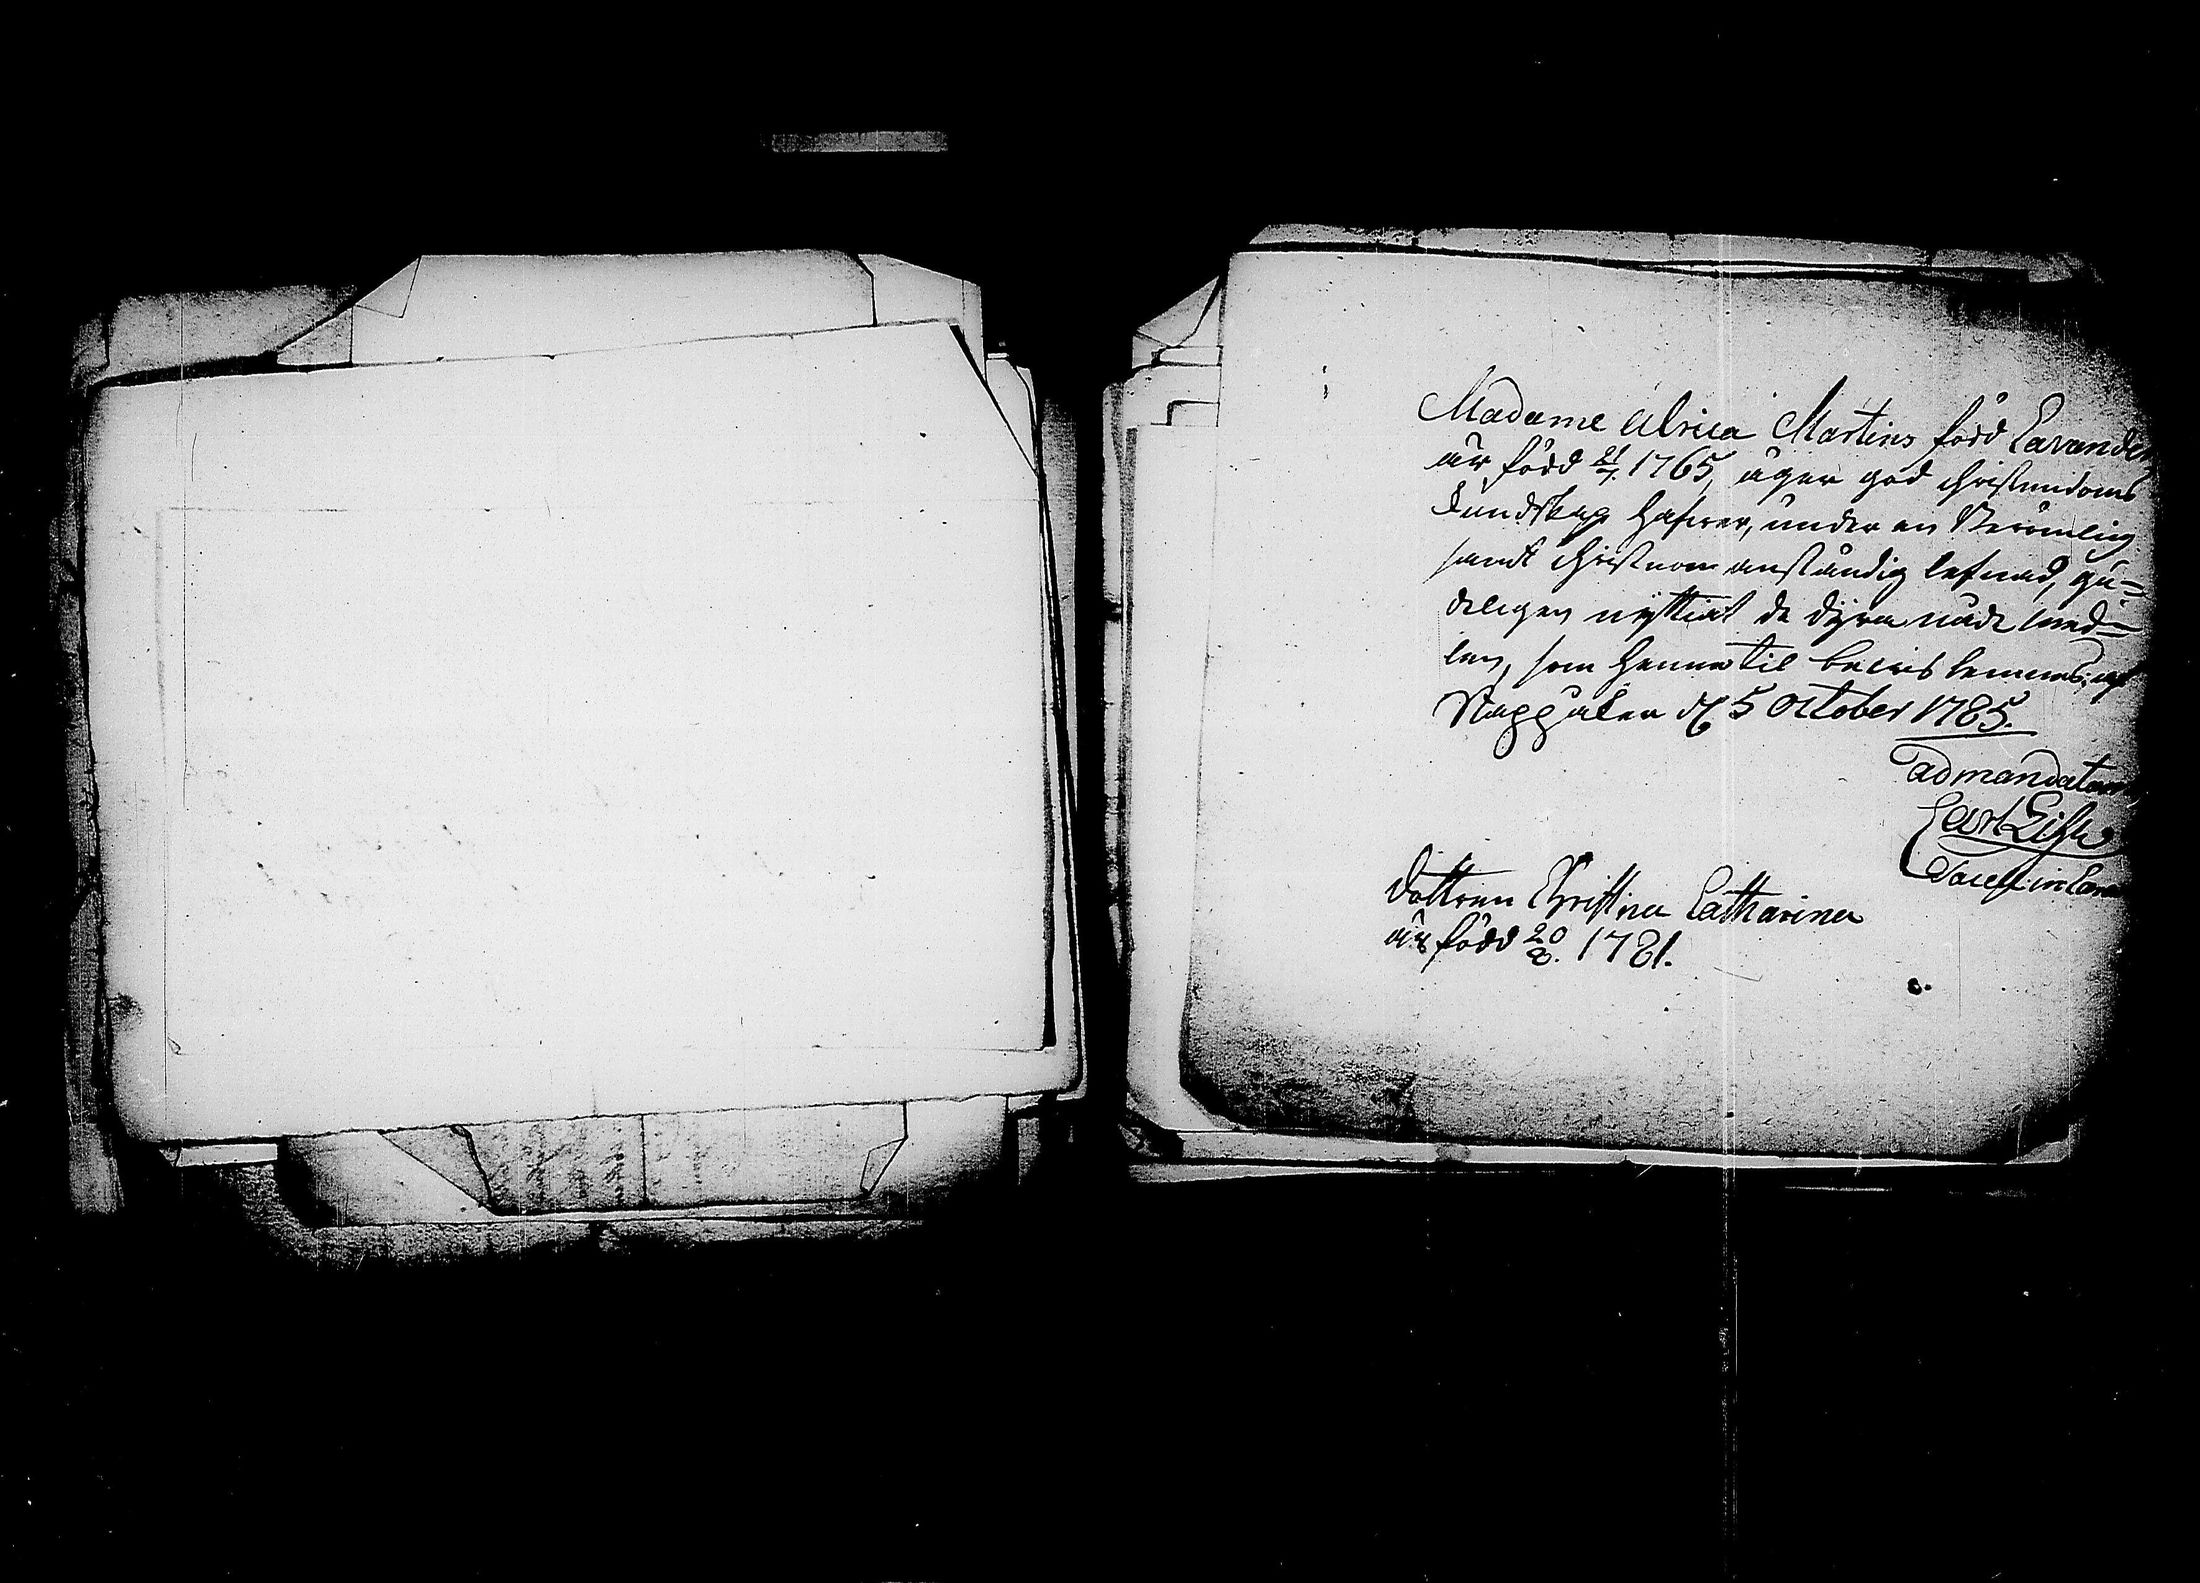 Madame Ulrica Martins född Lavande
är född 21/7. 1765, äger god christendoms
kundskap hafver, under en berömlig
samt christnom anständig lefnad, gu=
deligen nyttiat de dyra nåde med=
len, som henne til bevis lemnas, af
d 5 October 1785.
admandatum
Carl
Dottren Christina Catharina
är född 20/8. 1781.